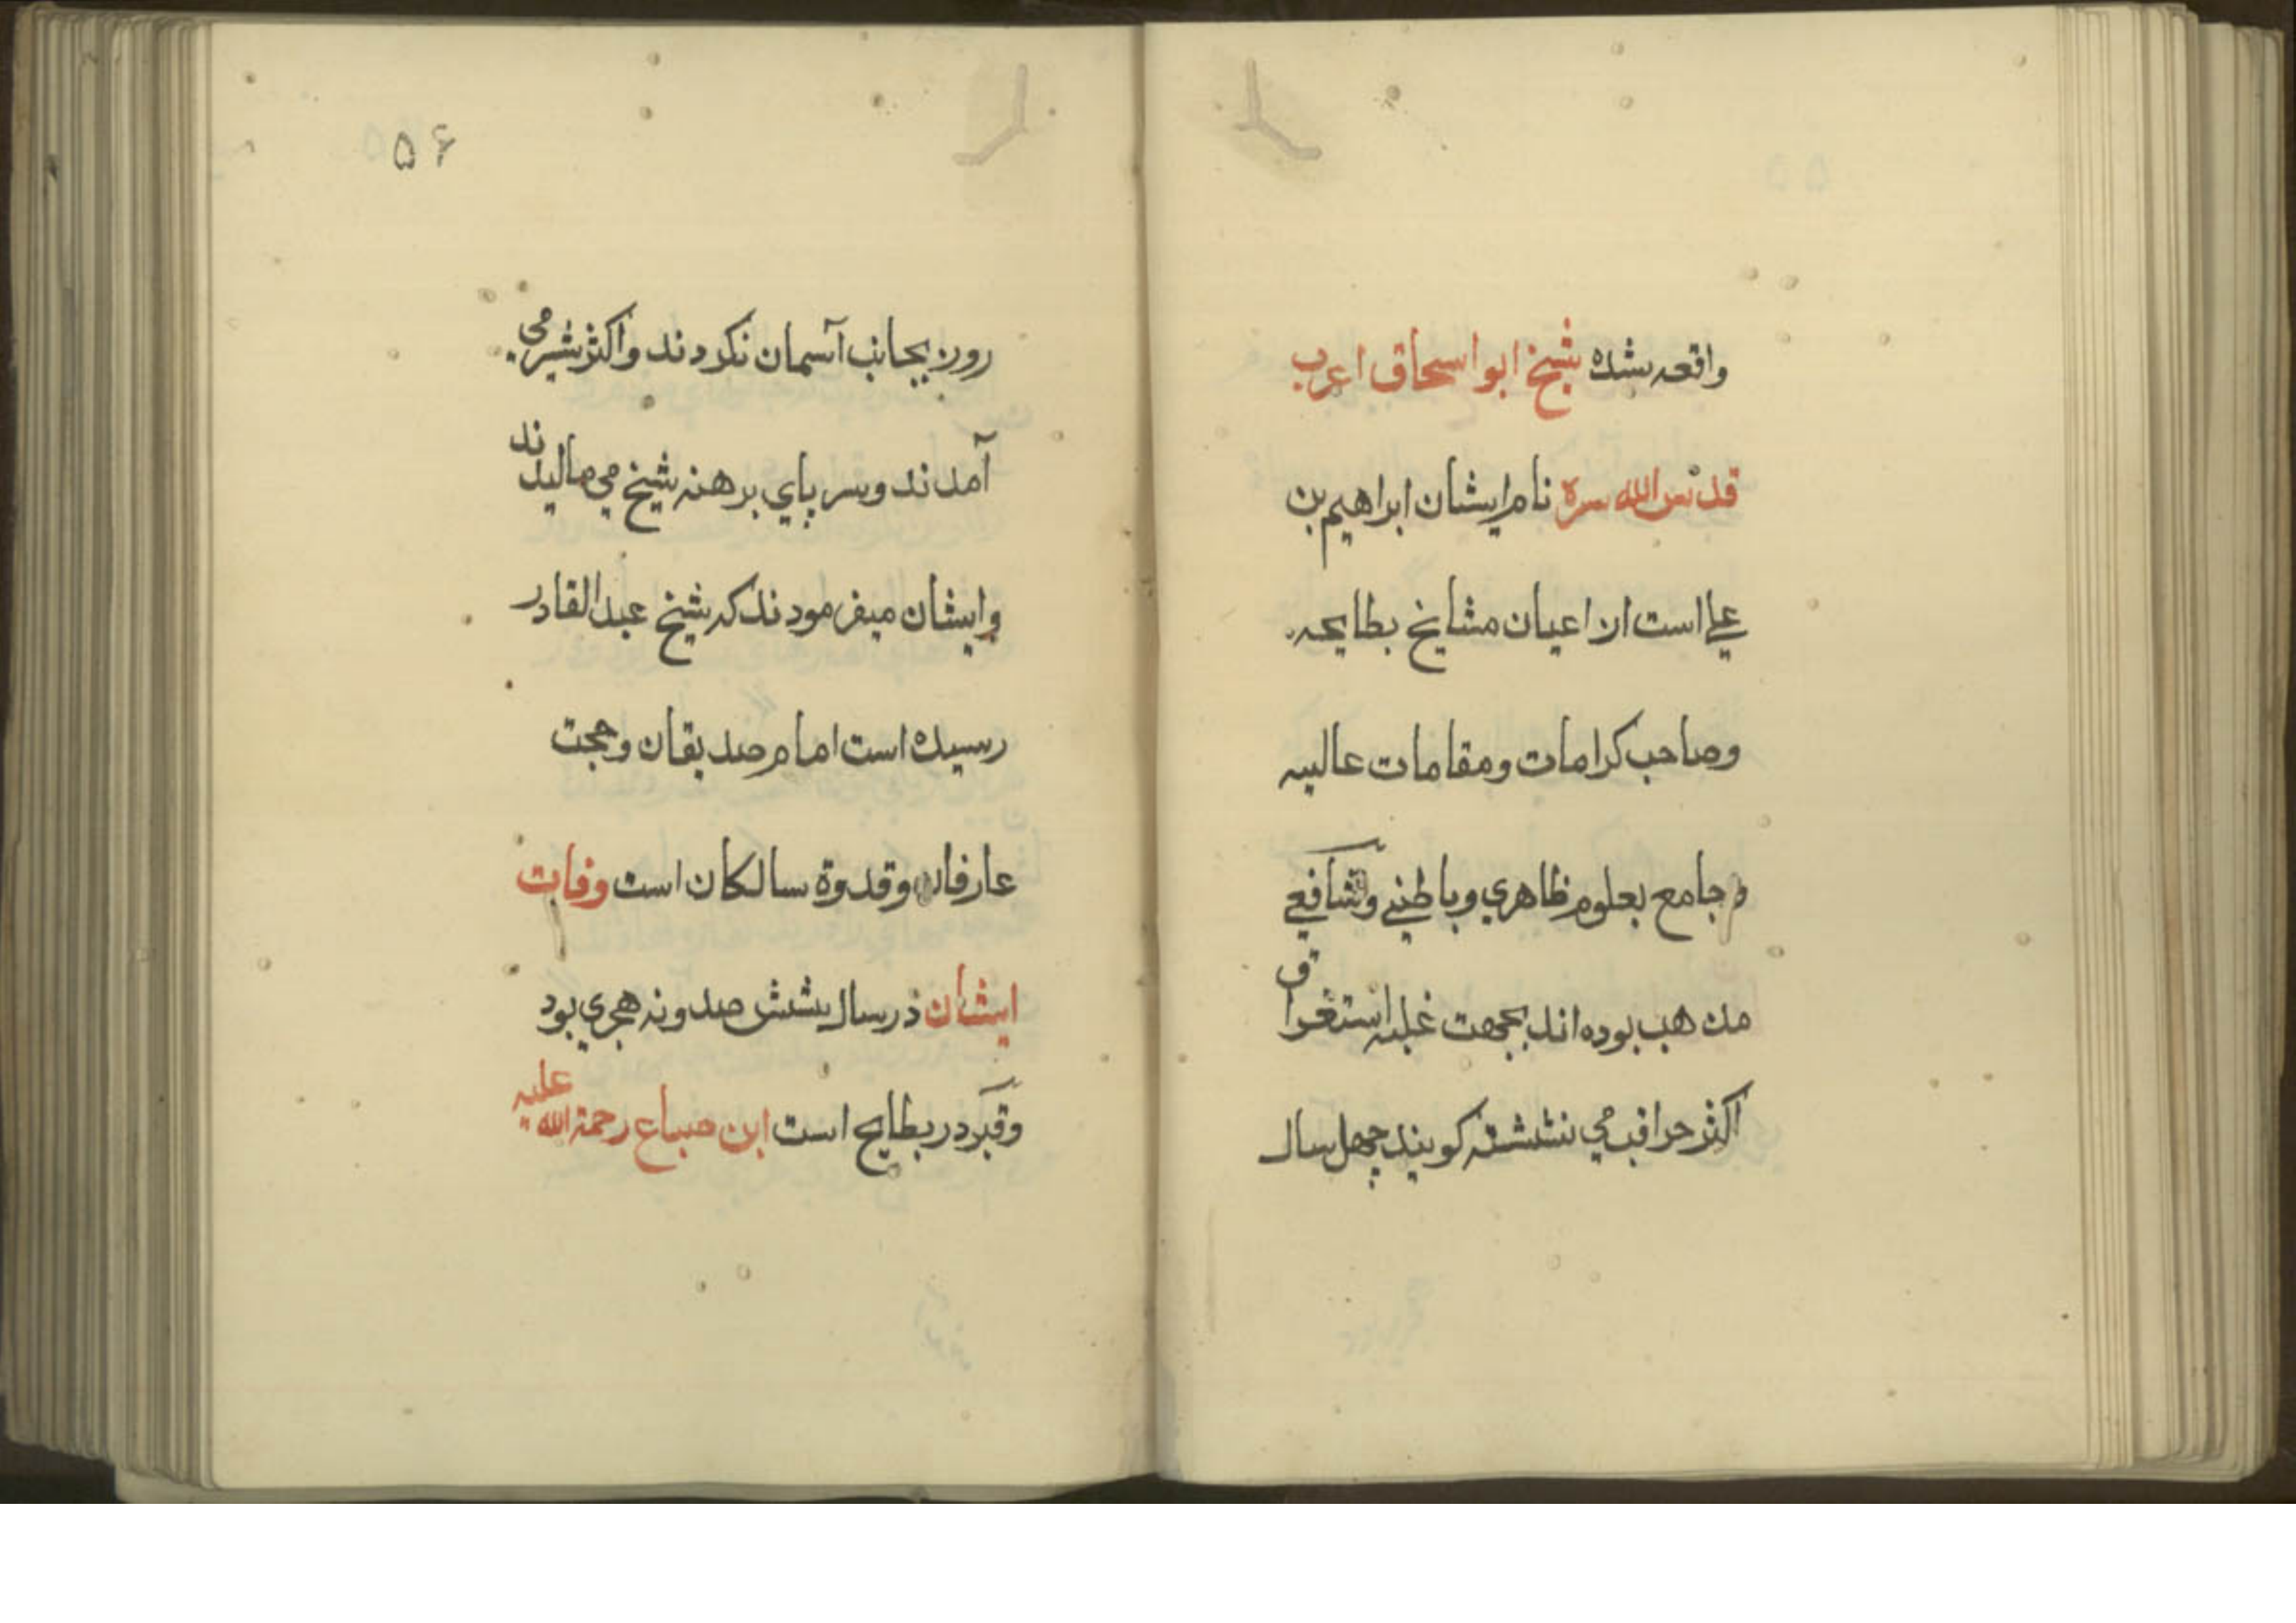 واقعه شده شیخ ابو اسحاق اعرب
قدس الله سره نام ایشان ابراهیم بن
علی است از اعیان مشایخ بطایحه
وصاحب کرامات و مقامات عالیه
و جامع بعلوم ظاهری و باطنی و شافعی
مذهب بوده اند بجهت غلبه استغراق
اکثر مراقب می نشسته کویند چهل سال
روی بجانب آسمان نکردند و اکثر شیر می
آمدند و سر بپای برهنه شیخ می مالیدند
وایشان میفرمودند که شیخ عبد القادر
رسیده است امام صدیقان و حجت
عارفان وقدوة سالکان است وفات
ایشان در سال شش صد و نه هجری بود
وقبر در بطایح است ابن صباع رحمة الله علیه
۵۶